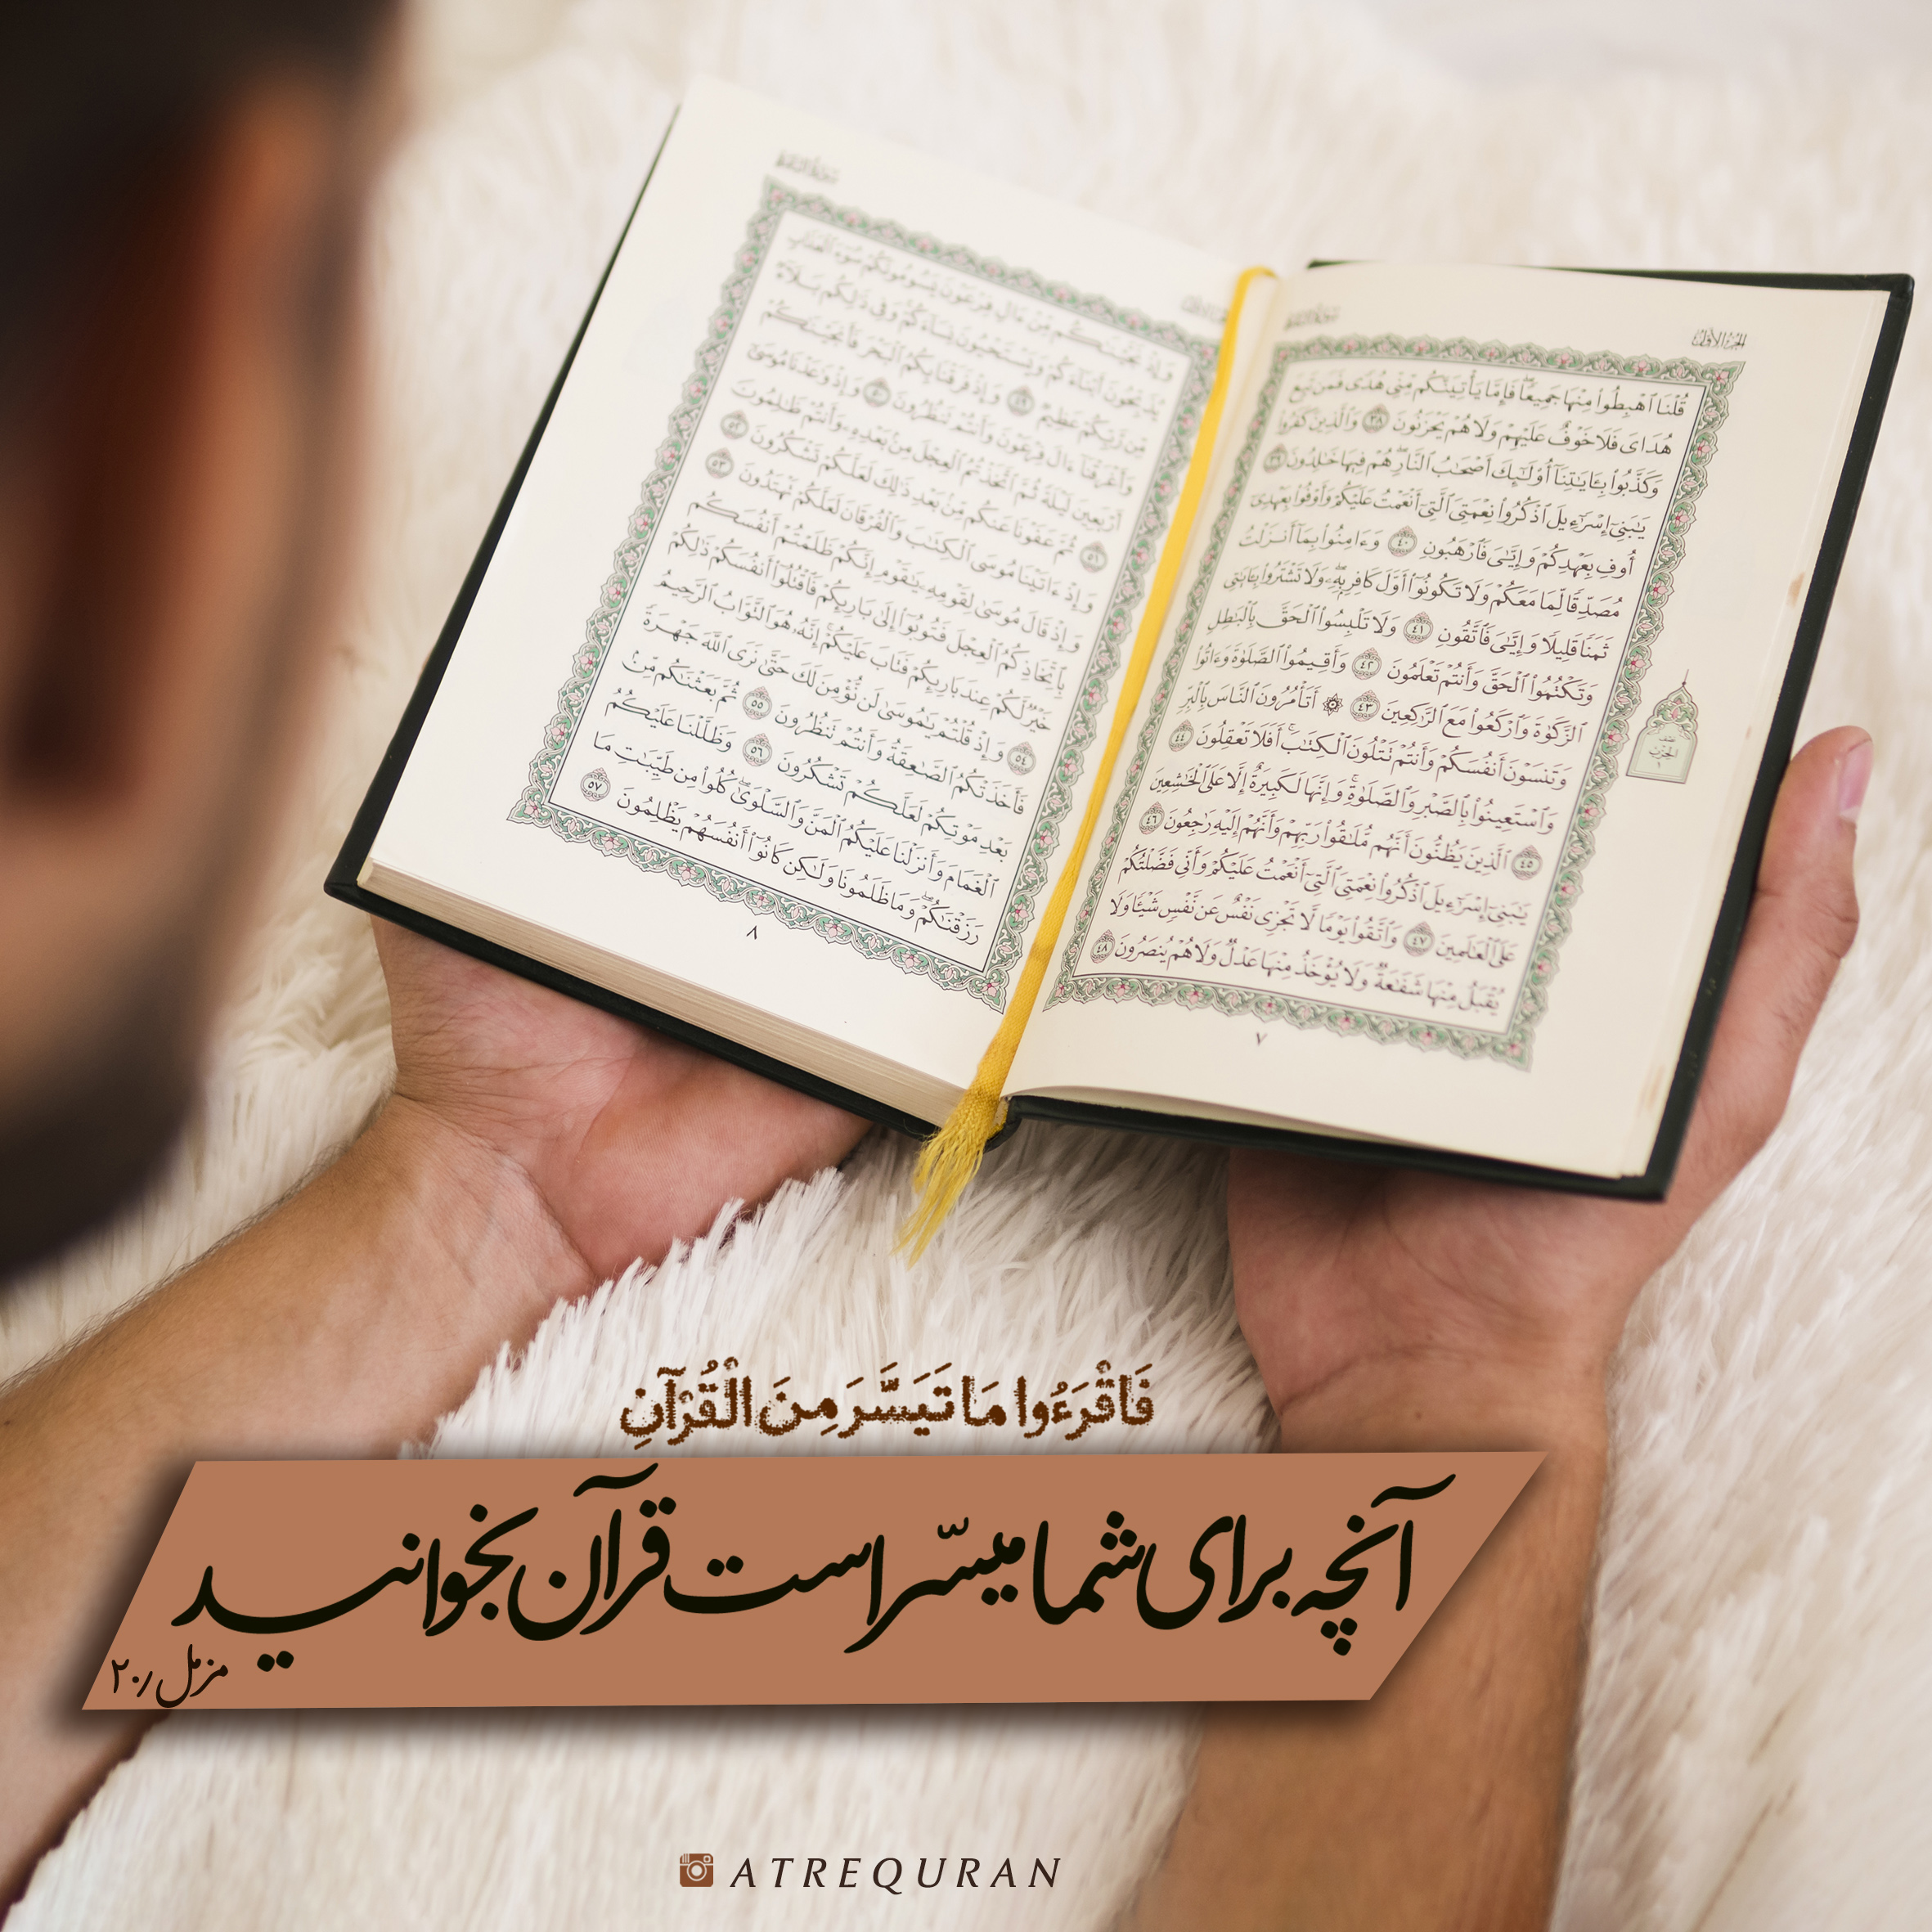 الجزء الأول
سورة البقرة
قُلْنَا ٱهْبِطُوا۟ مِنْهَا جَمِيعًا ۖ فَإِمَّا يَأْتِيَنَّكُم مِّنِّى هُدًى فَمَن تَبِعَ
هُدَاىَ فَلَا خَوْفٌ عَلَيْهِمْ وَلَا هُمْ يَحْزَنُونَ ٣٨ وَٱلَّذِينَ كَفَرُوا۟
وَكَذَّبُوا۟ بِـَٔايَـٰتِنَآ أُو۟لَـٰٓئِكَ أَصْحَـٰبُ ٱلنَّارِ ۖ هُمْ فِيهَا خَـٰلِدُونَ ٣٩
يَـٰبَنِىٓ إِسْرَٰٓءِيلَ ٱذْكُرُوا۟ نِعْمَتِىَ ٱلَّتِىٓ أَنْعَمْتُ عَلَيْكُمْ وَأَوْفُوا۟ بِعَهْدِىٓ
أُوفِ بِعَهْدِكُمْ وَإِيَّـٰىَ فَٱرْهَبُونِ ٤٠ وَءَامِنُوا۟ بِمَآ أَنزَلْتُ
مُصَدِّقًا لِّمَا مَعَكُمْ وَلَا تَكُونُوٓا۟ أَوَّلَ كَافِرٍۭ بِهِۦ ۖ وَلَا تَشْتَرُوا۟ بِـَٔايَـٰتِى
ثَمَنًا قَلِيلًا وَإِيَّـٰىَ فَٱتَّقُونِ ٤١ وَلَا تَلْبِسُوا۟ ٱلْحَقَّ بِٱلْبَـٰطِلِ
وَتَكْتُمُوا۟ ٱلْحَقَّ وَأَنتُمْ تَعْلَمُونَ ٤٢ وَأَقِيمُوا۟ ٱلصَّلَوٰةَ وَءَاتُوا۟
ٱلزَّكَوٰةَ وَٱرْكَعُوا۟ مَعَ ٱلرَّٰكِعِينَ ٤٣ ۞ أَتَأْمُرُونَ ٱلنَّاسَ بِٱلْبِرِّ
وَتَنسَوْنَ أَنفُسَكُمْ وَأَنتُمْ تَتْلُونَ ٱلْكِتَـٰبَ ۚ أَفَلَا تَعْقِلُونَ ٤٤
وَٱسْتَعِينُوا۟ بِٱلصَّبْرِ وَٱلصَّلَوٰةِ ۚ وَإِنَّهَا لَكَبِيرَةٌ إِلَّا عَلَى ٱلْخَـٰشِعِينَ
٤٥ ٱلَّذِينَ يَظُنُّونَ أَنَّهُم مُّلَـٰقُوا۟ رَبِّهِمْ وَأَنَّهُمْ إِلَيْهِ رَٰجِعُونَ ٤٦
يَـٰبَنِىٓ إِسْرَٰٓءِيلَ ٱذْكُرُوا۟ نِعْمَتِىَ ٱلَّتِىٓ أَنْعَمْتُ عَلَيْكُمْ وَأَنِّى فَضَّلْتُكُمْ
عَلَى ٱلْعَـٰلَمِينَ ٤٧ وَٱتَّقُوا۟ يَوْمًا لَّا تَجْزِى نَفْسٌ عَن نَّفْسٍ شَيْـًٔا وَلَا
يُقْبَلُ مِنْهَا شَفَـٰعَةٌ وَلَا يُؤْخَذُ مِنْهَا عَدْلٌ وَلَا هُمْ يُنصَرُونَ ٤٨
نصف
الحزب
١
٧
سورة البقرة
وَإِذْ نَجَّيْنَـٰكُم مِّنْ ءَالِ فِرْعَوْنَ يَسُومُونَكُمْ سُوٓءَ ٱلْعَذَابِ
يُذَبِّحُونَ أَبْنَآءَكُمْ وَيَسْتَحْيُونَ نِسَآءَكُمْ ۚ وَفِى ذَٰلِكُم بَلَآءٌ
مِّن رَّبِّكُمْ عَظِيمٌ ٤٩ وَإِذْ فَرَقْنَا بِكُمُ ٱلْبَحْرَ فَأَنجَيْنَـٰكُمْ
وَأَغْرَقْنَآ ءَالَ فِرْعَوْنَ وَأَنتُمْ تَنظُرُونَ ٥٠ وَإِذْ وَٰعَدْنَا مُوسَىٰٓ
أَرْبَعِينَ لَيْلَةً ثُمَّ ٱتَّخَذْتُمُ ٱلْعِجْلَ مِنۢ بَعْدِهِۦ وَأَنتُمْ ظَـٰلِمُونَ
٥١ ثُمَّ عَفَوْنَا عَنكُم مِّنۢ بَعْدِ ذَٰلِكَ لَعَلَّكُمْ تَشْكُرُونَ ٥٢
وَإِذْ ءَاتَيْنَا مُوسَى ٱلْكِتَـٰبَ وَٱلْفُرْقَانَ لَعَلَّكُمْ تَهْتَدُونَ ٥٣
وَإِذْ قَالَ مُوسَىٰ لِقَوْمِهِۦ يَـٰقَوْمِ إِنَّكُمْ ظَلَمْتُمْ أَنفُسَكُم
بِٱتِّخَاذِكُمُ ٱلْعِجْلَ فَتُوبُوٓا۟ إِلَىٰ بَارِئِكُمْ فَٱقْتُلُوٓا۟ أَنفُسَكُمْ ذَٰلِكُمْ
خَيْرٌ لَّكُمْ عِندَ بَارِئِكُمْ فَتَابَ عَلَيْكُمْ ۚ إِنَّهُۥ هُوَ ٱلتَّوَّابُ ٱلرَّحِيمُ
٥٤ وَإِذْ قُلْتُمْ يَـٰمُوسَىٰ لَن نُّؤْمِنَ لَكَ حَتَّىٰ نَرَى ٱللَّهَ جَهْرَةً
فَأَخَذَتْكُمُ ٱلصَّـٰعِقَةُ وَأَنتُمْ تَنظُرُونَ ٥٥ ثُمَّ بَعَثْنَـٰكُم مِّنۢ
بَعْدِ مَوْتِكُمْ لَعَلَّكُمْ تَشْكُرُونَ ٥٦ وَظَلَّلْنَا عَلَيْكُمُ
ٱلْغَمَامَ وَأَنزَلْنَا عَلَيْكُمُ ٱلْمَنَّ وَٱلسَّلْوَىٰ ۖ كُلُوا۟ مِن طَيِّبَـٰتِ مَا
رَزَقْنَـٰكُمْ ۖ وَمَا ظَلَمُونَا وَلَـٰكِن كَانُوٓا۟ أَنفُسَهُمْ يَظْلِمُونَ ٥٧
٨
فَاقْرَءُوا مَا تَيَسَّرَ مِنَ الْقُرْآنِ
آنچه برای شما میسّر است قرآن بخوانید
مزمل/۲۰
ATREQURAN